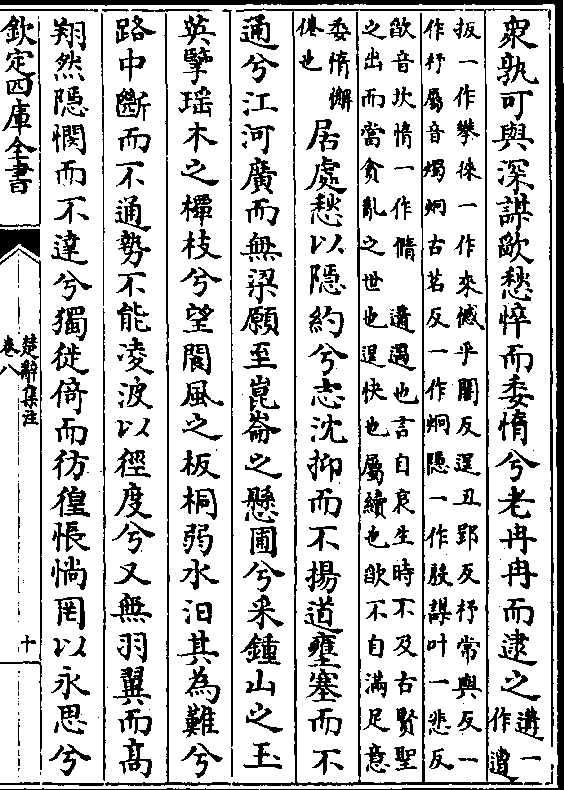 衆孰可與深謀欿愁悴而委惰兮老冉冉而逮之遘一
作遭
扳一作攀徠一作來憾乎闇反逞丑郢反杼常與反一
作杼屬音燭炯古茗反一作烱隱一作殷謀叶一悲反
欿音坎惰一作脩 遘遇也言自哀生時不及古賢聖
之出而當貪亂之世也逞快也屬續也欿不自滿足意
委惰懈
倦也
居處愁以隱約兮志沈抑而不揚道壅塞而不
通兮江河廣而無梁願至崑崙之懸圃兮采鍾山之玉
英擥瑶木之橝枝兮望閬風之板桐弱水汨其為難兮
路中斷而不通勢不能凌波以徑度兮又無羽翼而高
翔然隱憫而不達兮獨徙倚而彷徨悵惝罔以永思兮
欽定四庫全書
楚辭集注
卷八
十